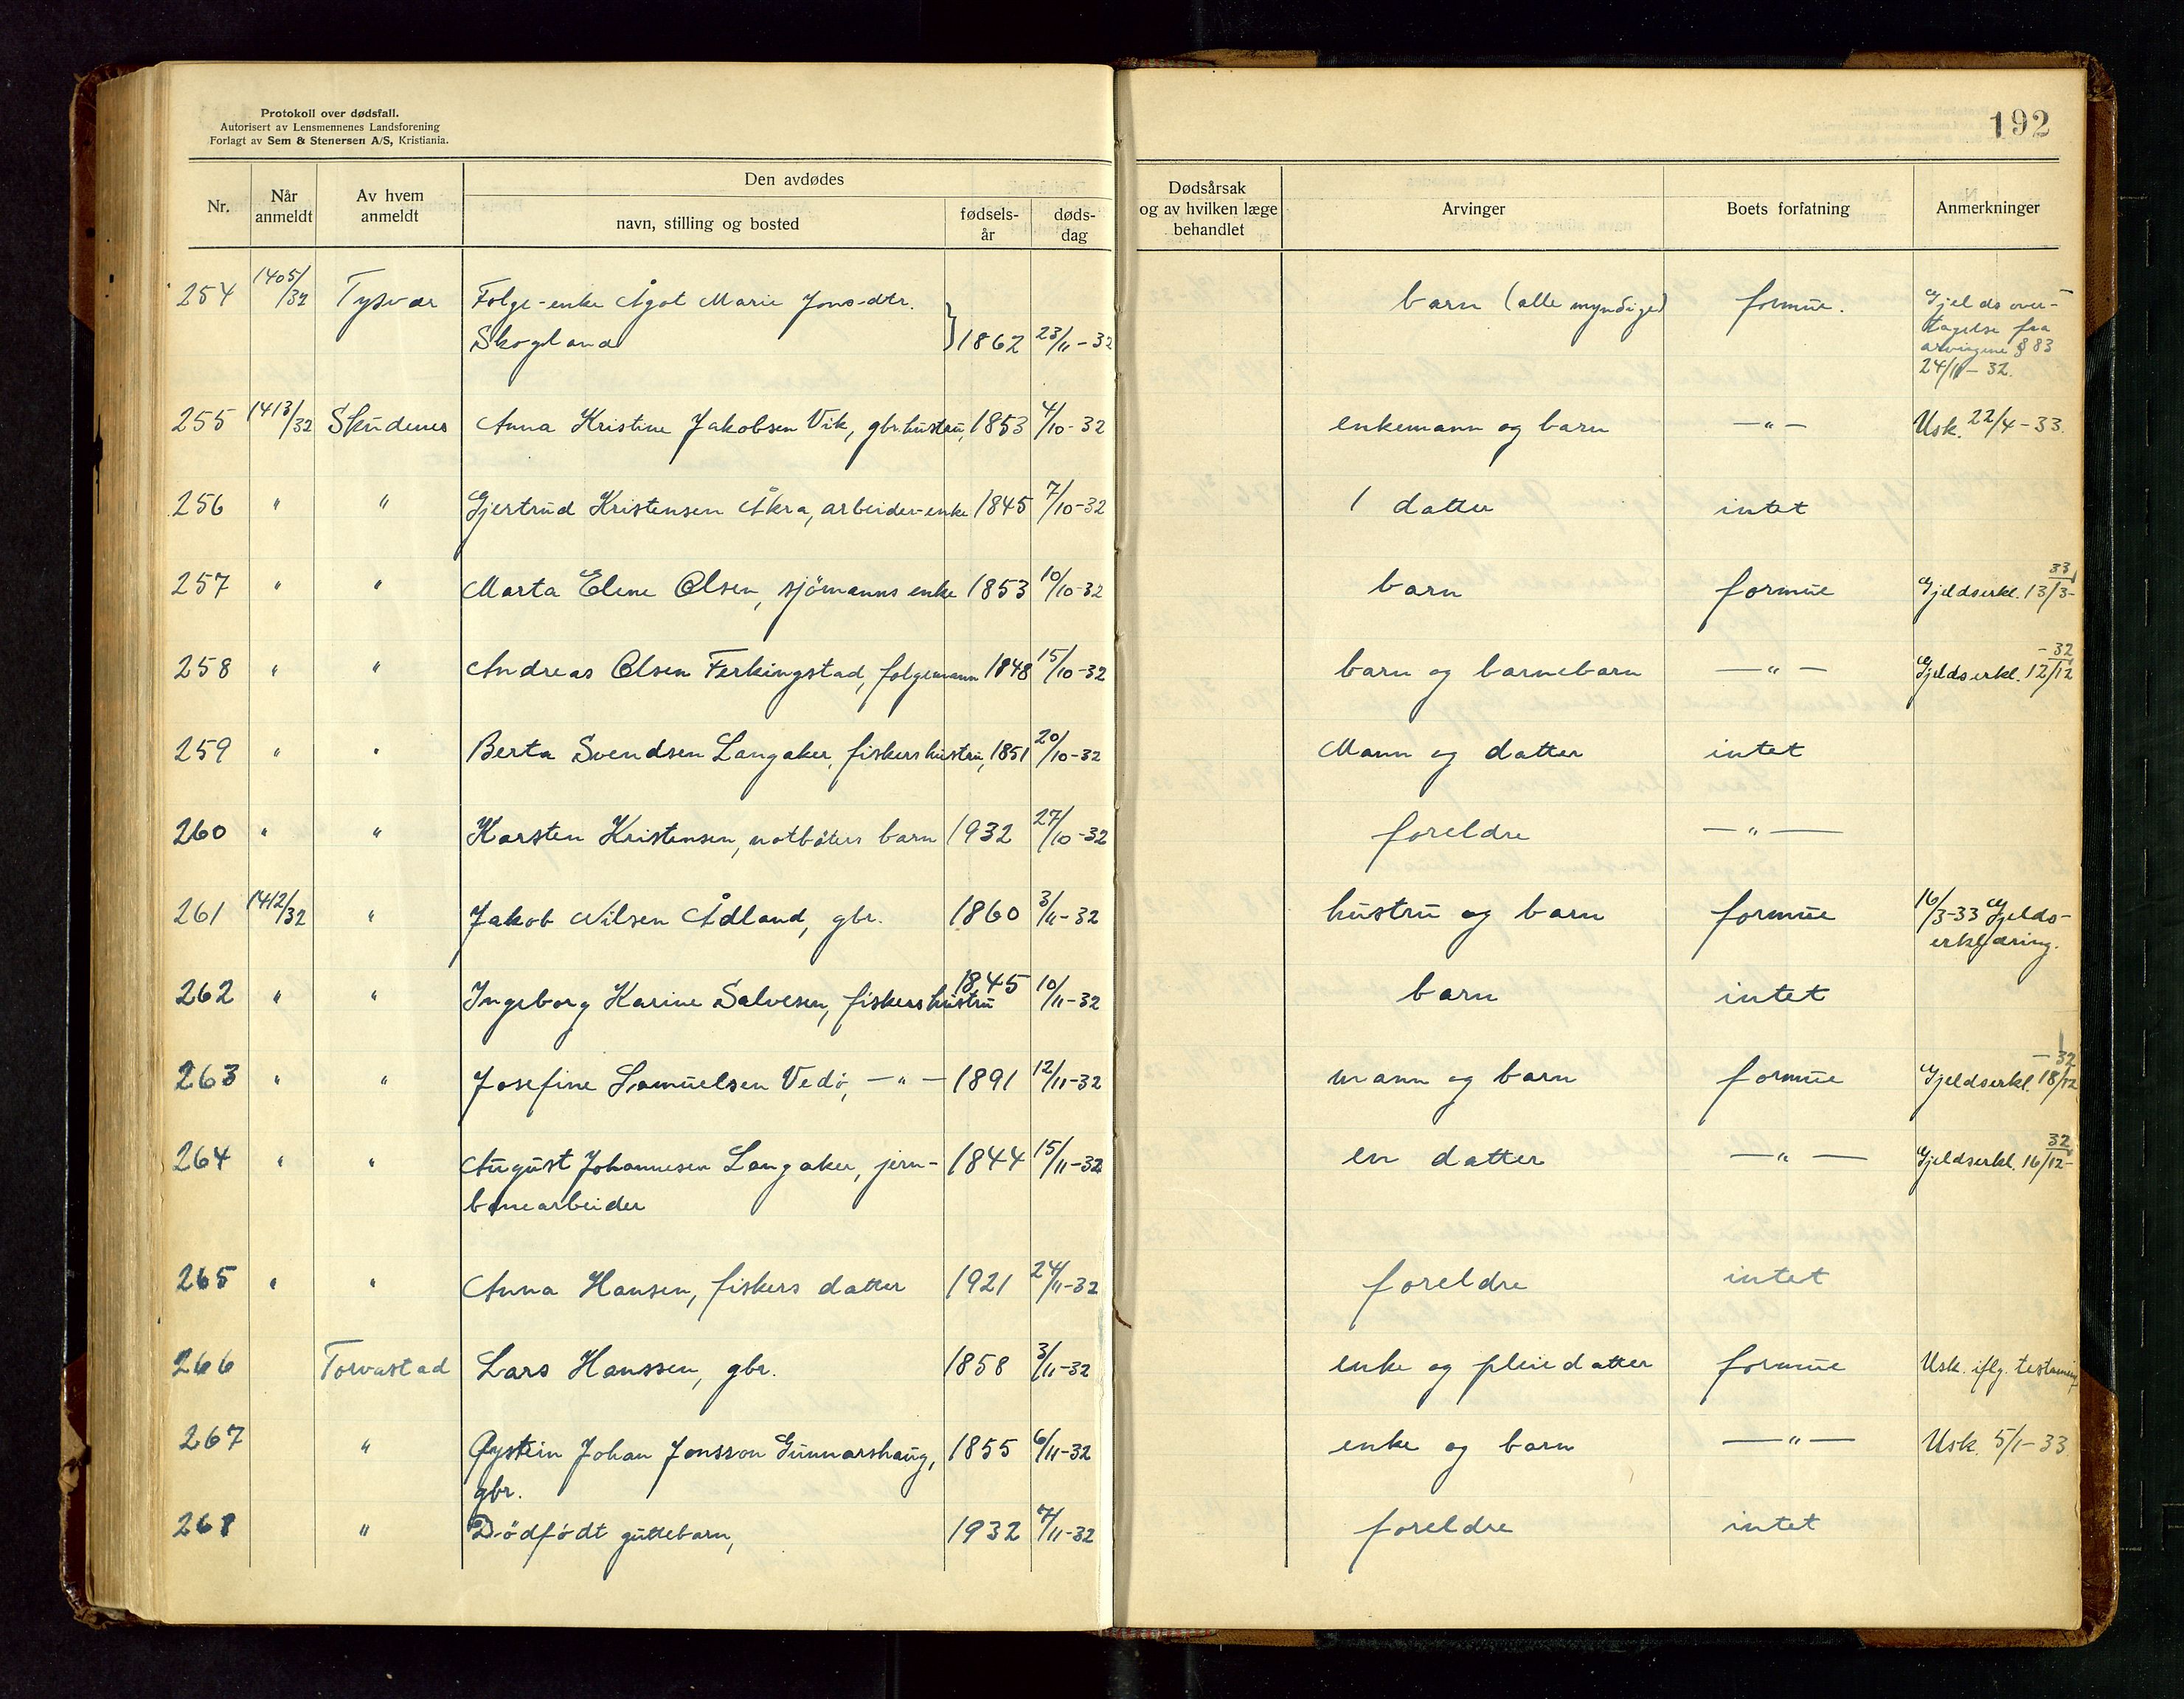 Protokoll over dødsfall.
Autorisert av Lensmennenes Landsforening
Forlagt av Sem & Stenersen A/S, Kristiania.
192
Nr. Når anmeldt Av hvem anmeldt Den avdødes navn, stilling og bosted fødsels-år døds-dag Dødsårsak og av hvilken læge behandlet Arvinger Boets forfatning Anmerkninger
254 1405/32 Tysvær Følge-enke Ågot Marie Jons-dtr. barn (alle myndige) formue. Gjelds over-
Skogland 1862 23/11-32 tagelse fra
arvingene § 83
24/11-32.
255 1413/32 Skudenes Anna Kristine Jakobsen Vik, gbr.hustru, 1853 4/10-32 enkemann og barn —"— Usk. 22/4-33.
256 " " Gjertrud Kristensen Åkra, arbeider-enke 1845 7/10-32 1 datter intet
257 " " Marta Elene Olsen, sjömanns enke 1853 10/10-32 barn formue Gjeldserkl. 13/3-33
258 " " Andreas Olsen Ferkingstad, følgemann 1848 15/10-32 barn og barnebarn —"— Gjeldserkl. 12/12-32
259 " " Berta Svendsen Langaker, fiskers hustru, 1851 20/10-32 Mann og datter intet
260 " " Karsten Kristensen, notbåters barn 1932 27/10-32 foreldre —"—
261 1412/32 " Jakob Nilsen Ådland, gbr. 1860 3/11-32 hustru og barn formue 16/3-33 Gjelds-
erklæring.
262 " " Ingeborg Karine Salvesen, fiskers hustru 1845 10/11-32 barn intet
263 " " Josefine Samuelsen Vedø, —"— 1891 12/11-32 mann og barn formue Gjeldserkl. 18/12-32
264 " " August Johannesen Langaker, jern- 1844 15/11-32 en datter —"— Gjeldserkl. 16/12-32
banearbeider
265 " " Anna Hansen, fiskers datter 1921 24/11-32 foreldre intet
266 Torvastad Lars Hanssen, gbr. 1858 3/11-32 enke og pleiedatter formue Usk. iflg.
267 " Øystein Johan Jonsson Gunnarshaug, 1855 6/11-32 enke og barn —"— Usk. 5/1-33.
gbr.
268 " Dödfødt guttebarn, 1932 7/11-32 foreldre intet